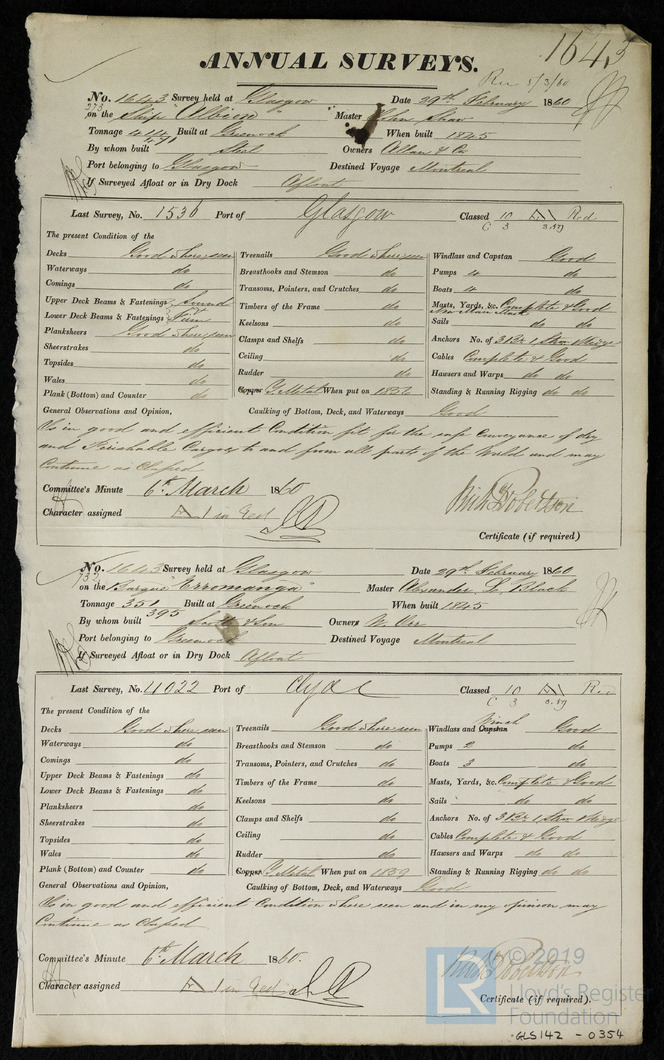 1643
ANNUAL SURVEYS.
Rec 5/3/60
No. 1643 Survey held at Glasgow Date 29th February 1860
on the Ship "Albion" Master John Shaw
Tonnage 414 Built at Greenock When built 1845
By whom built Steel Owners Allan & Co
Port belonging to Glasgow Destined Voyage Montreal
If Surveyed Afloat or in Dry Dock Afloat
Last Survey, No. 1536 Port of Glasgow Classed 10 A Red
C 3 3.59
The present Condition of the
Decks Good where seen Treenails Good where seen Windlass and Capstan Good
Waterways do Breasthooks and Stemson do Pumps 4 do
Comings do Transoms, Pointers, and Crutches do Boats 4 do
Upper Deck Beams & Fastenings Sound Timbers of the Frame do Masts, Yards, &c. Complete & Good
New Main Mast
Lower Deck Beams & Fastenings Firm Keelsons do Sails do do
Planksheers Good where seen Clamps and Shelfs do Anchors No. of 3 Br 1 Strm
Sheerstrakes do Ceiling do Cables Complete & Good
Topsides do Rudder do Hawsers and Warps do do
Wales do Copper Y. Metal When put on 1856 Standing & Running Rigging do do
Plank (Bottom) and Counter do
General Observations and Opinion, Caulking of Bottom, Deck, and Waterways Good
Is in good and efficient Condition fit for the safe Conveyance of dry
and Perishable Cargoes to and from all parts of the World and may
Continue as Classed
Committee's Minute 6th March 1860
Robertson
Character assigned A 1 in red
Certificate (if required)
No. 1643 Survey held at Glasgow Date 29th February 1860
on the Barque "Erromanga" Master Alexander L. Black
Tonnage 351 Built at Greenock When built 1845
395
By whom built Scott & Son Owners W. Orr
Port belonging to Greenock Destined Voyage Montreal
If Surveyed Afloat or in Dry Dock Afloat
Last Survey, No. 4022 Port of Clyde Classed 10 A Red
C 3 3.59
The present Condition of the
Winch
Decks Good where seen Treenails Good where seen Windlass and Capstan Good
Waterways do Breasthooks and Stemson do Pumps 2 do
Comings do Transoms, Pointers, and Crutches do Boats 3 do
Upper Deck Beams & Fastenings do Timbers of the Frame do Masts, Yards, &c. Complete & Good
Lower Deck Beams & Fastenings do Keelsons do Sails do do
Planksheers do Clamps and Shelfs do Anchors No. of 3 Br 1 Strm
Sheerstrakes do Ceiling do Cables Complete & Good
Topsides do Rudder do Hawsers and Warps do do
Wales do Copper Y. Metal When put on 1859 Standing & Running Rigging do do
Plank (Bottom) and Counter do
General Observations and Opinion, Caulking of Bottom, Deck, and Waterways Good
Is in good and efficient Condition where seen and in my opinion may
Continue as Classed
Committee's Minute 6th March 1860.
Character assigned A 1 in red
Certificate (if required).
LR ©2019
Lloyd's Register
Foundation
GLS142 - 0354